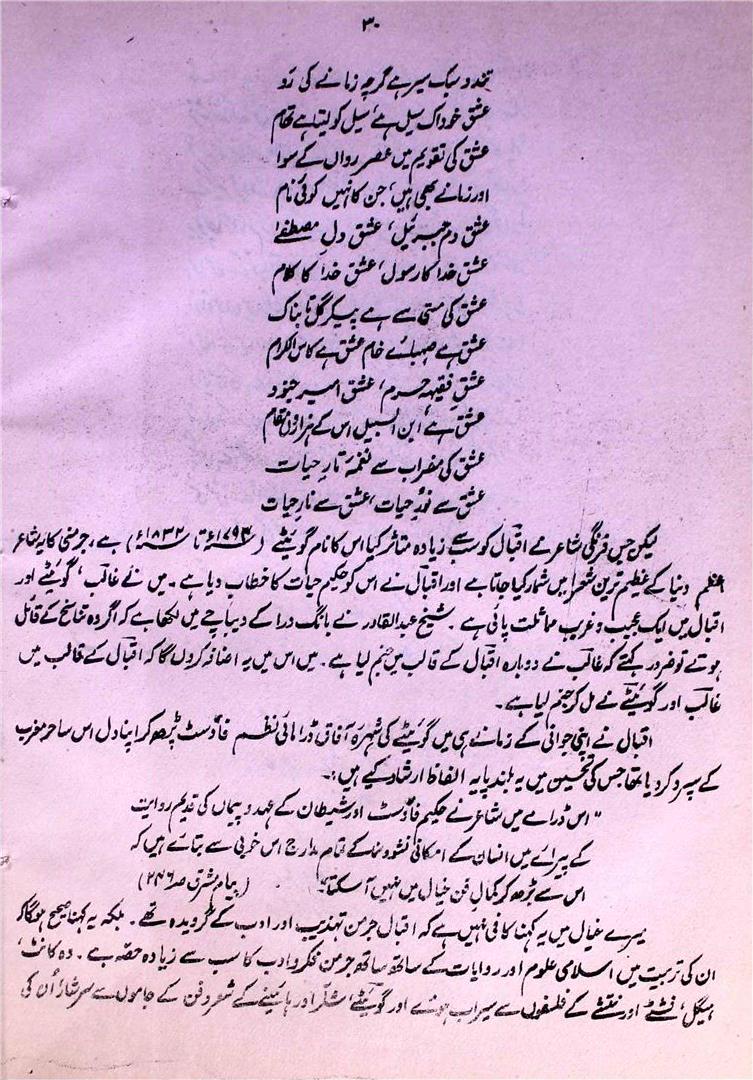 ۳۰
تند و سبک سیر ہے گرچہ زمانے کی رَو
عشق خود اک سیل ہے، سیل کو لیتا ہے تھام
عشق کی تقویم میں عصرِ رواں کے سوا
اور زمانے بھی ہیں، جن کا نہیں کوئی نام
عشق دمِ جبرئیل، عشق دلِ مصطفےٰ
عشق خدا کا رسول، عشق خدا کا کلام
عشق کی مستی سے ہے پیکرِ گل تابناک
عشق ہے صہبائے خام عشق ہے کاس الکرام
عشق فقیہہِ حرم، عشق امیرِ جنود
عشق ہے ابن السبیل اس کے ہزاروں مقام
عشق کی مضراب سے نغمۂ تارِ حیات
عشق سے نورِ حیات، عشق سے نارِ حیات
لیکن جس فرنگی شاعر نے اقبال کو سب سے زیادہ متاثر کیا اس کا نام گوئٹے (۱۷۹۳ء تا ۱۸۳۲ء) ہے، جرمنی کا یہ شاعر
اعظم دنیا کے عظیم ترین شعرا میں شمار کیا جاتا ہے اور اقبال نے اس کو حکیم حیات کا خطاب دیا ہے۔ میں نے غالب، گوئٹے اور
اقبال میں ایک عجیب و غریب مماثلت پائی ہے۔ شیخ عبدالقادر نے بانگ درا کے دیباچے میں لکھا ہے کہ اگر وہ تناسخ کے قائل
ہوتے تو ضرور کہتے کہ غالب نے دوبارہ اقبال کے قالب میں جنم لیا ہے۔ میں اس میں یہ اضافہ کروں گا کہ اقبال کے قالب میں
غالب اور گوئیٹے نے مل کر جنم لیا ہے۔
اقبال نے اپنی جوانی کے زمانے ہی میں گوئیٹے کی شہرہ آفاق ڈرامائی نظم فاؤسٹ پڑھ کر اپنا دل اس ساحرِ مغرب
کے سپرد کر دیا تھا جس کی تحسین میں یہ بلند پایہ الفاظ ارشاد کیے ہیں:۔
"اس ڈرامے میں شاعر نے حکیم فاؤسٹ اور شیطان کے عہد و پیماں کی قدیم روایت
کے پیرائے میں انسان کے امکانی نشوونما کے تمام مدارج اس خوبی سے بتائے ہیں کہ
اس سے بڑھ کر کمالِ فن خیال میں نہیں آ سکتا" (پیامِ مشرق صہ ۲۴۶)
میرے خیال میں یہ کہنا کافی نہیں ہے کہ اقبال جرمن تہذیب اور ادب کے گرویدہ تھے۔ بلکہ یہ کہنا صحیح ہوگا کہ
ان کی تربیت میں اسلامی علوم اور روایات کے ساتھ ساتھ جرمن فکر و ادب کا سب سے زیادہ حصہ ہے۔ وہ کانٹ،
ہیگل، فشٹے اور نیٹشے کے فلسفوں سے سیراب ہوئے اور گوئٹے، شلر اور ہائینے کے شعر و فن کے جاموں سے سرشار اُن کی